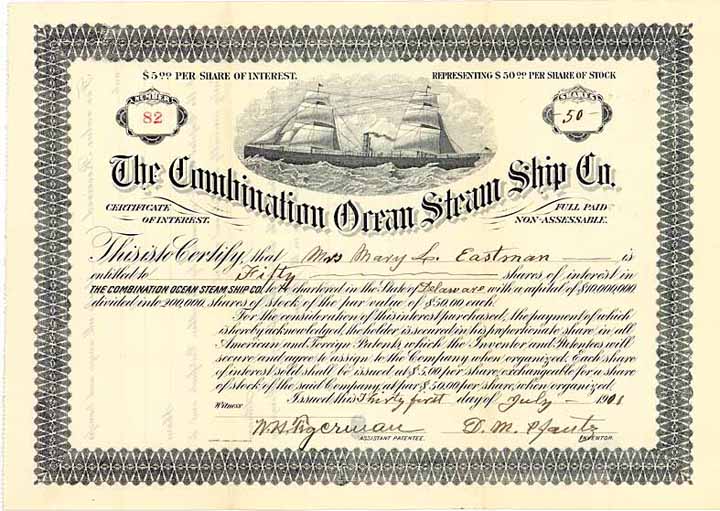 $5.00 PER SHARE OF INTEREST.
REPRESENTING $50.00 PER SHARE OF STOCK
NUMBER
82
SHARES
50
The Combination Ocean Steam Ship Co.
CERTIFICATE
OF INTEREST.
FULL PAID
NON-ASSESSABLE.
This is to Certify, that Mrs Mary L. Eastman is
entitled to Fifty shares of interest in
THE COMBINATION OCEAN STEAM SHIP CO. to be chartered in the State of Delaware with a capital of $10,000,000
divided into 200,000, shares of stock of the par value of $50.00 each.
For the consideration of this interest purchased, the payment of which
is hereby acknowledged, the holder is secured in his proportionate share in all
American and Foreign Patents, which the Inventor and Patentees will
secure and agree to assign to the Company when organized. Each share
of interest sold shall be issued at $5.00 per share, exchangeable for a share
of stock of the said Company, at par $50.00 per share, when organized.
Issued this Thirty first day of July 1901
Witness
W.H.
ASSISTANT PATENTEE.
D. M. Pfautz
INVENTOR.